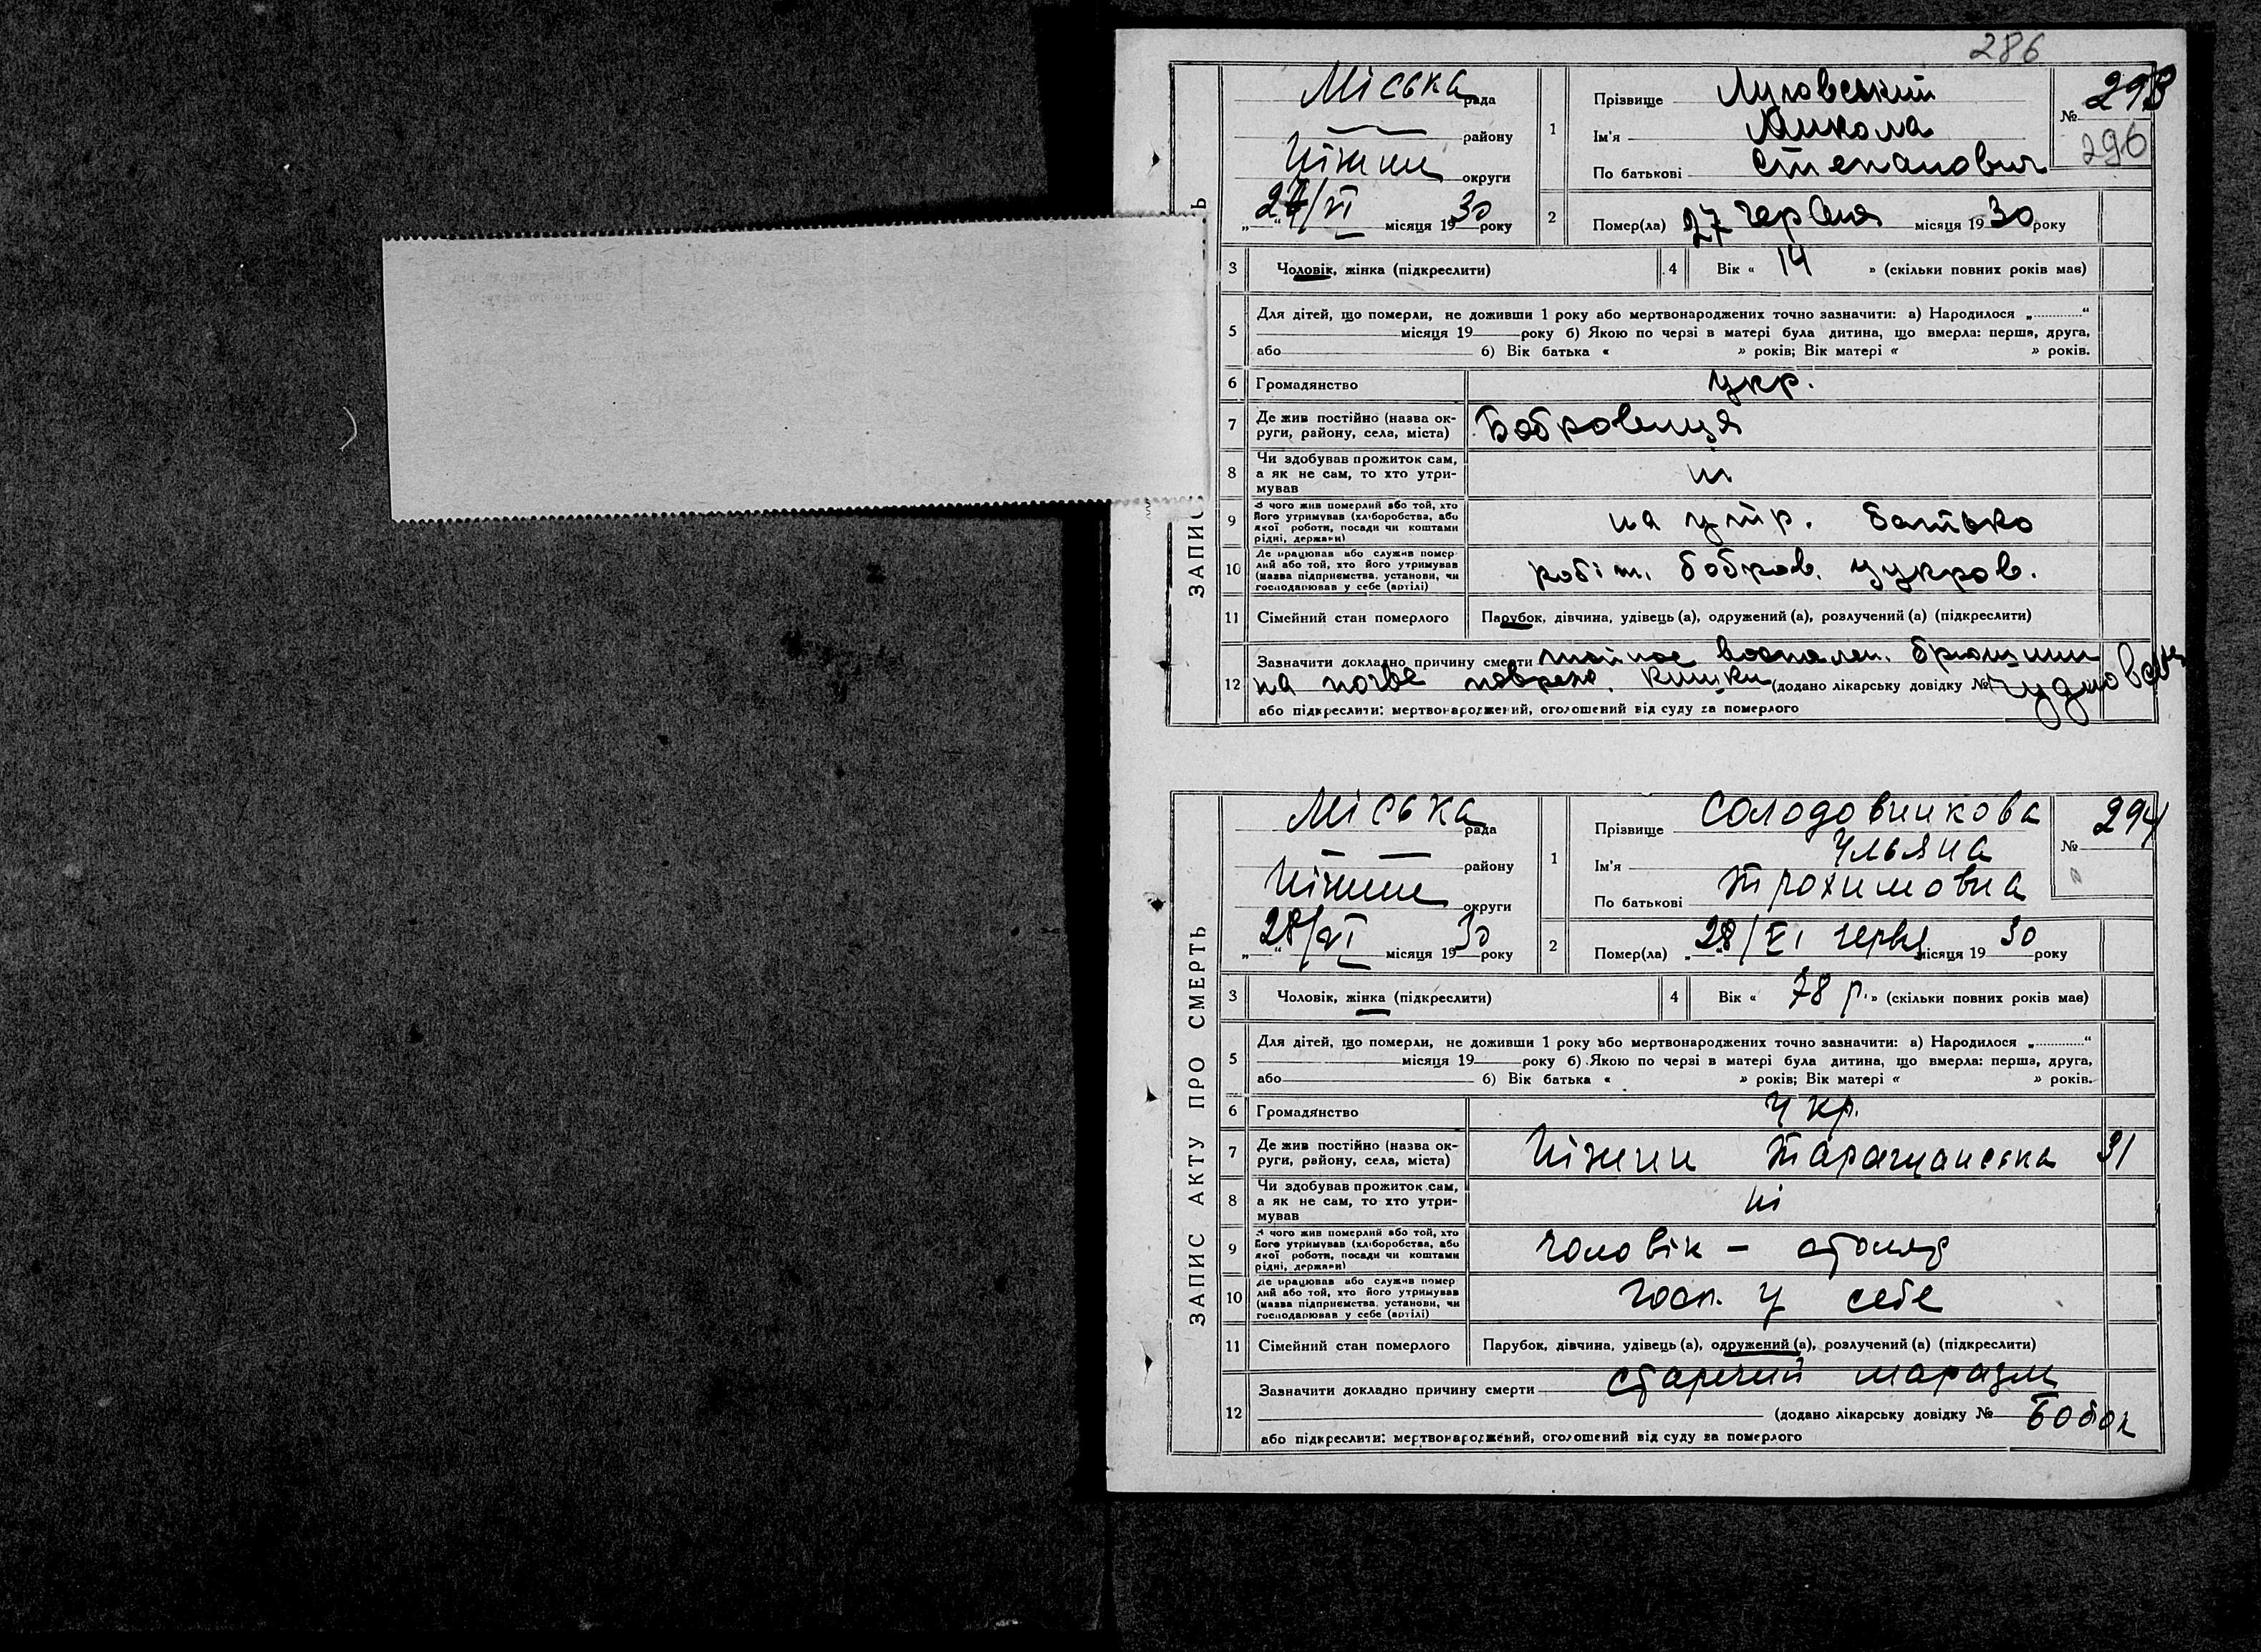 286
Міська рада
району
Ніжин округи
/VI місяця 1930 року
1
Прізвище Луговський
Ім'я Микола
По батькові Степанович
№ 293
296
2
Помер(ла) 27 червня місяця 1930 року
3 Чоловік, жінка (підкреслити)
4 Вік « 14 » (скільки повних років має)
5
Для дітей, що померли, не доживши 1 року або мертвонароджених точно зазначити: а) Народилося „............“
місяця 19 року б) Якою по черзі в матері була дитина, що вмерла: перша, друга,
або б) Вік батька « » років; Вік матері « » років.
6 Громадянство укр.
7 Де жив постійно (назва ок-
руги, району, села, міста) Бобровиця
8 Чи здобував прожиток сам,
а як не сам, то хто утри-
мував
ні
9 З чого жив померлий або той, хто
його утримував (хліборобства, або
якої роботи, посади чи коштами
рідні, держави)
на утр. батько
10 Де працював або служив помер
лий або той, хто його утримував
(назва підприємства, установи, чи
господарював у себе (артілі)
робіт. бобров. цукров.
11 Сімейний стан померлого Парубок, дівчина, удівець (а), одружений (а), розлучений (а) (підкреслити)
12 Зазначити докладно причину смерти гнойное воспален. брюшини
на почве поврежд. кишки (додано лікарську довідку №
або підкреслити: мертвонароджений, оголошений від суду за померлого
ЗАПИС
Міська рада
району
Ніжин округи
28/VI місяця 1930 року
1
Прізвище Солодовникова
Ім'я Ульяна
По батькові Трохимовна
№ 294
2
Помер(ла) „ 28/VI червня місяця 1930 року
3 Чоловік, жінка (підкреслити)
4 Вік « 78 р. » (скільки повних років має)
5
Для дітей, що померли, не доживши 1 року або мертвонароджених точно зазначити: а) Народилося „............“
місяця 19 року б) Якою по черзі в матері була дитина, що вмерла: перша, друга,
або б) Вік батька « » років; Вік матері « » років.
6 Громадянство Укр.
7 Де жив постійно (назва ок-
руги, району, села, міста) Ніжин Таращанська 31
8 Чи здобував прожиток сам,
а як не сам, то хто утри-
мував
ні
9 З чого жив померлий або той, хто
його утримував (хліборобства, або
якої роботи, посади чи коштами
рідні, держави)
чоловік – столяр
10 Де працював або служив помер
лий або той, хто його утримував
(назва підприємства, установи, чи
господарював у себе (артілі)
госп. у себе
11 Сімейний стан померлого Парубок, дівчина, удівець (а), одружений (а), розлучений (а) (підкреслити)
12 Зазначити докладно причину смерти старечий маразм
(додано лікарську довідку № Бобок
або підкреслити: мертвонароджений, оголошений від суду за померлого
ЗАПИС АКТУ ПРО СМЕРТЬ